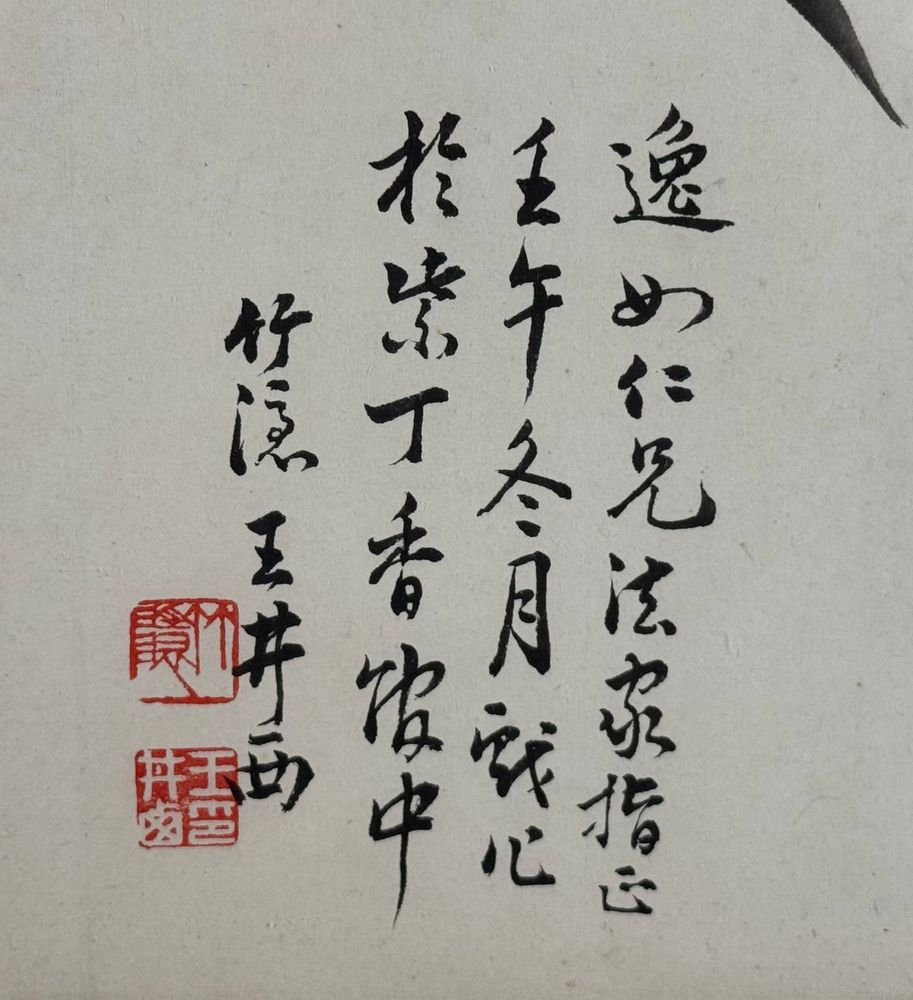 逸如仁兄法家指正
壬午冬月戲作
於紫丁香館中
竹隱王井西
竹隱
王印井西